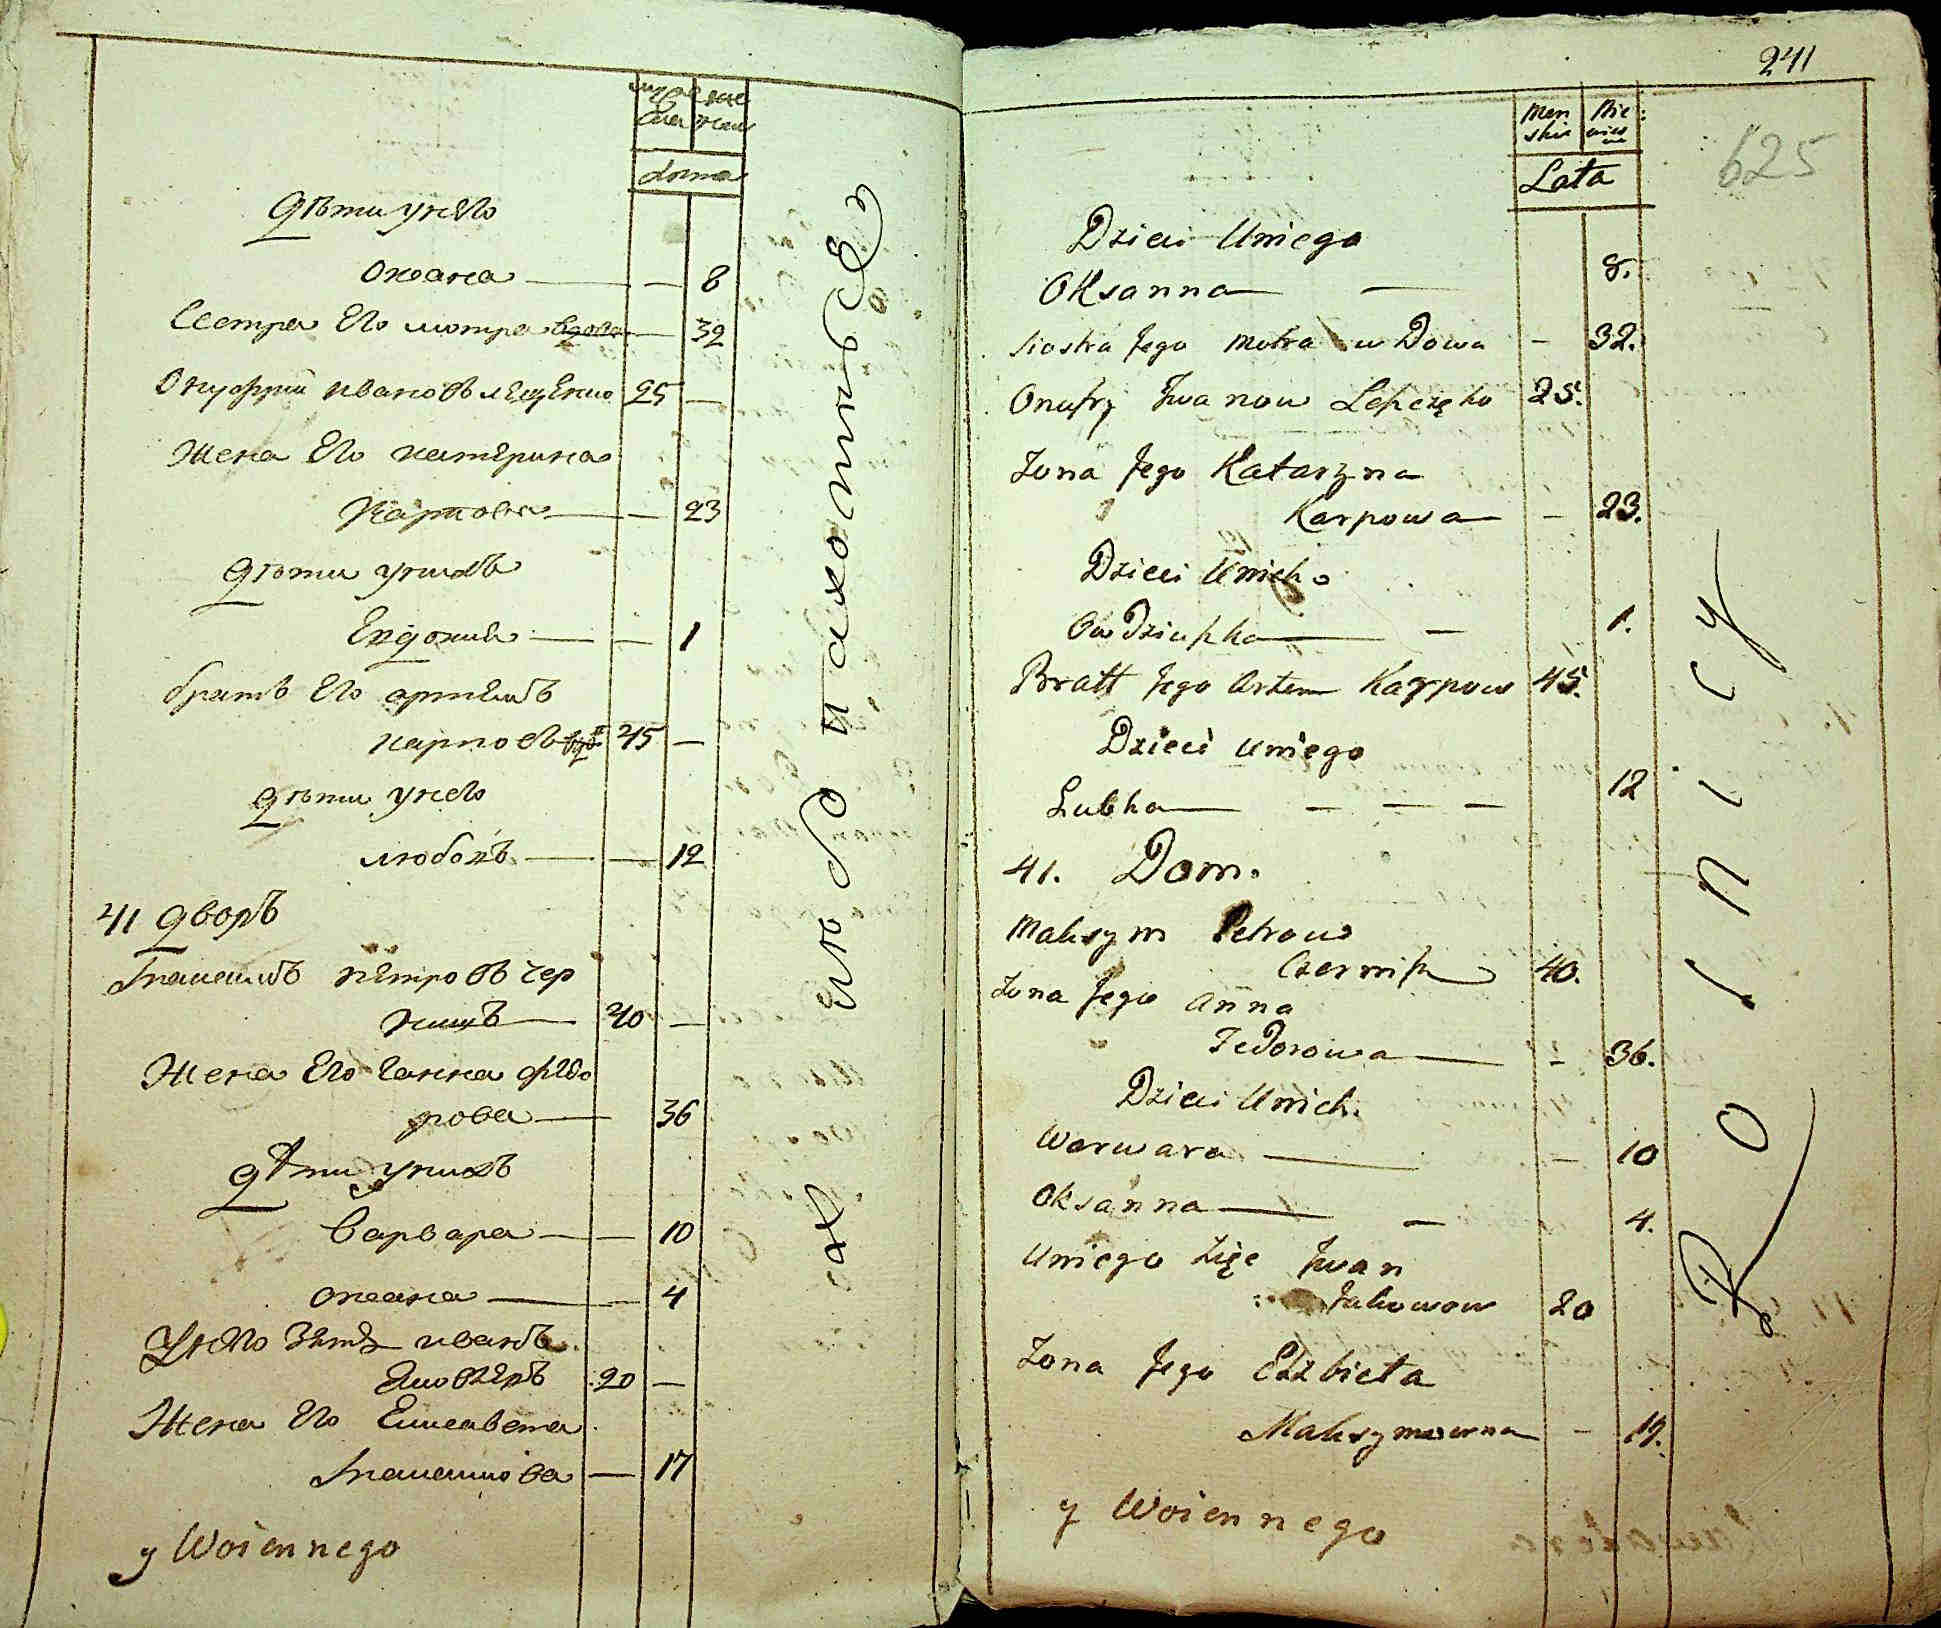 дѣти унего
оксана — — 8
Сестра Его мотра вдова — 32
Онуфрий ивановъ лещенко 25 —
Жена Его катерина
Карпова — — 23
дѣти унихъ
Евдокия — — 1
братъ Его артемъ
карповъ вдо 45 —
дѣти унего
любовъ — — 12
41 дворъ
Максимъ петровъ чер
нишъ — 40 —
Жена Его Ганна федо
рова — 36
дѣти унихъ
Варвара — — 10
оксана — — 4
Унего зять иванъ
20 —
Жена Его Елисавета
Максимова — 17
y Woiennego
хлебопахотные
241
625
Men skie
Nie wies
Lata
Dzieci Uniego
Oksanna — — 8.
Siostra Jego Motra w Dowa — 32.
Onufry Jwanow Leszczęko 25.
Zona Jego Katarzna
Karpowa — — 23.
Dzieci Unich
Owdziuszka — — 1.
Bratt Jego Artem Karpow 45.
Dzieci Uniego
Lubka — — — — 12
41. Dom.
Maksym Petrow
Czernisz 40.
Zona Jego Anna
Fedorowa — — 36.
Dzieci Unich.
Warwara — — 10
Oksanna — — 4.
Uniego Zięc Jwan
Jakowow 20
Zona Jego Elzbieta
Maksymowna — 17.
y Woiennego
Rolnicy